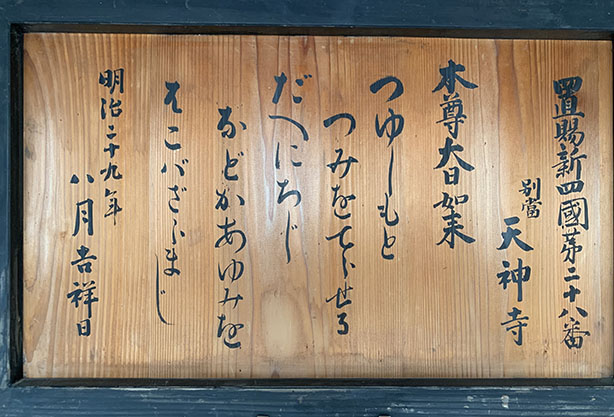 置賜新四國苐二十八番
別當 天神寺
本尊大日如来
つゆしもと
つみをてらせる
だへにちじ
などかあゆみを
はこバざらまじ
明治二十九年
八月吉祥日